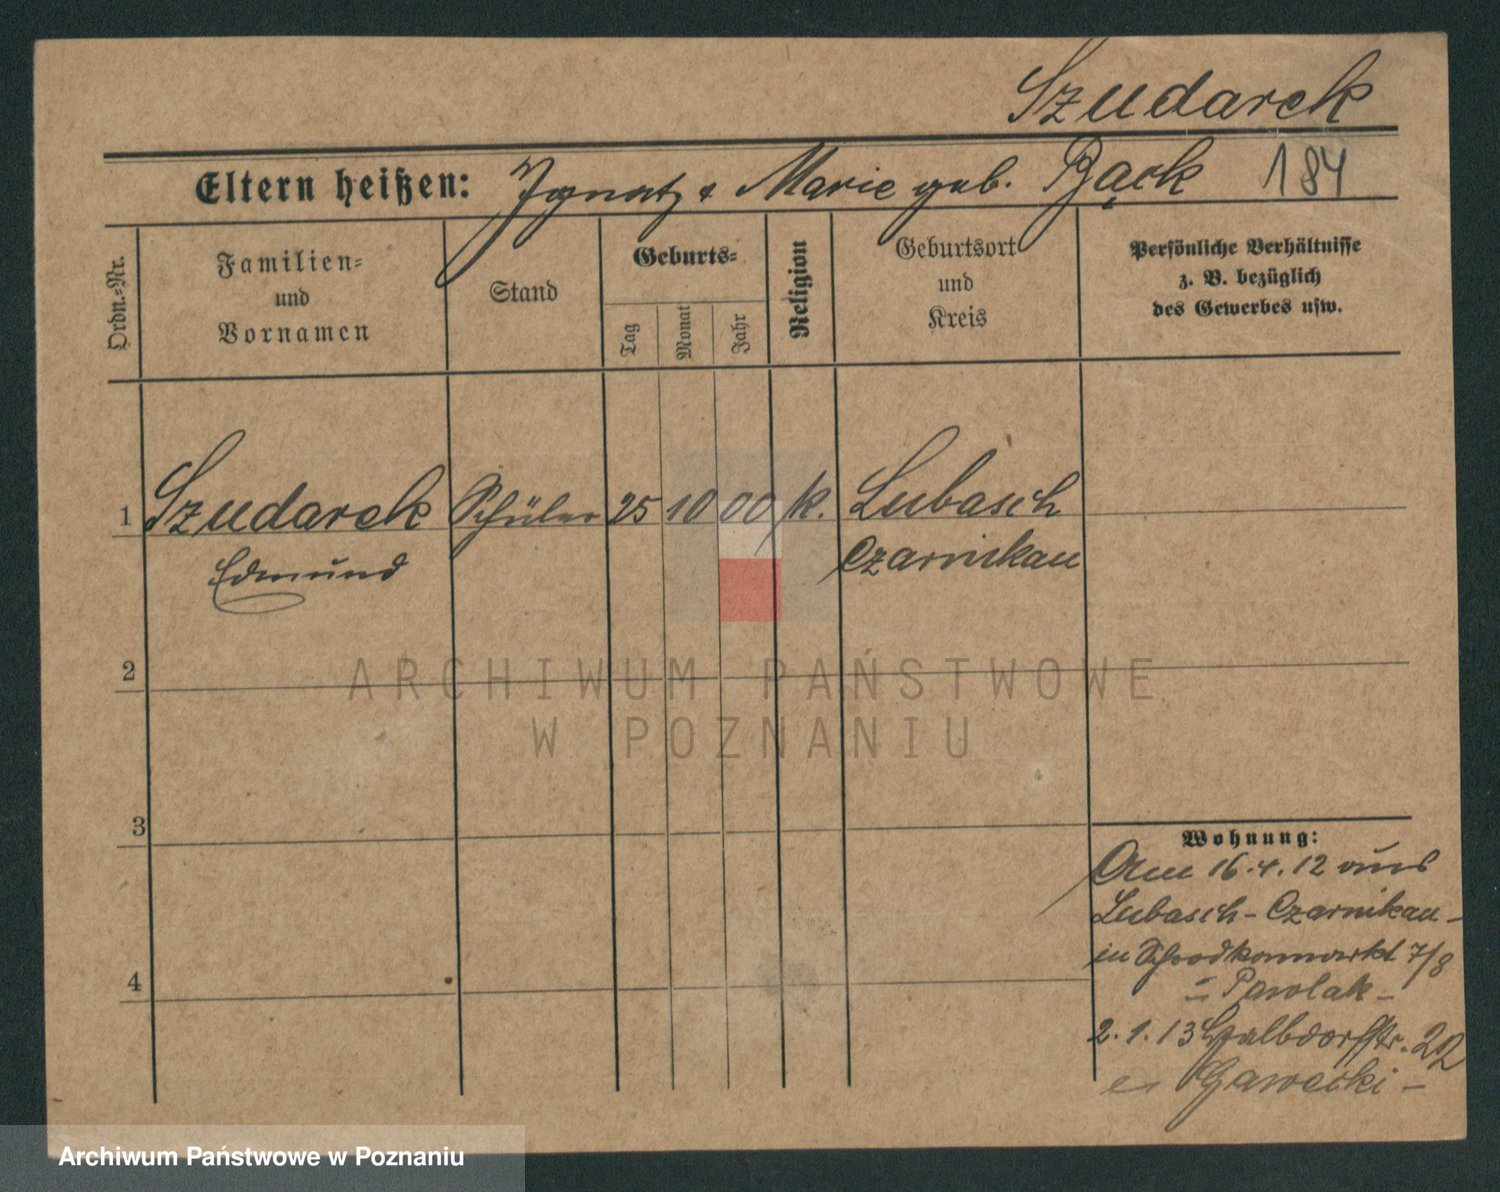 Szudarek
Eltern heißen: Ignatz & Marie geb. Bąck 184
Ordn.-Nr.
Familien-
und
Vornamen
Stand
Geburts-
Tag
Monat
Jahr
Religion
Geburtsort
und
Kreis
Persönliche Verhältnisse
z. B. bezüglich
des Gewerbes usw.
1 Szudarek Schüler 25 10 00 k. Lubasch
Edmund Czarnikau
2
ARCHIWUM PAŃSTWOWE
W POZNANIU
3
Wohnung:
Am 16.4.12 aus
Lubasch - Czarnikau -
in 7/8
4
Pawlak -
2.1.13 Halbdorfstr. 22
Gawecki -
Archiwum Państwowe w Poznaniu